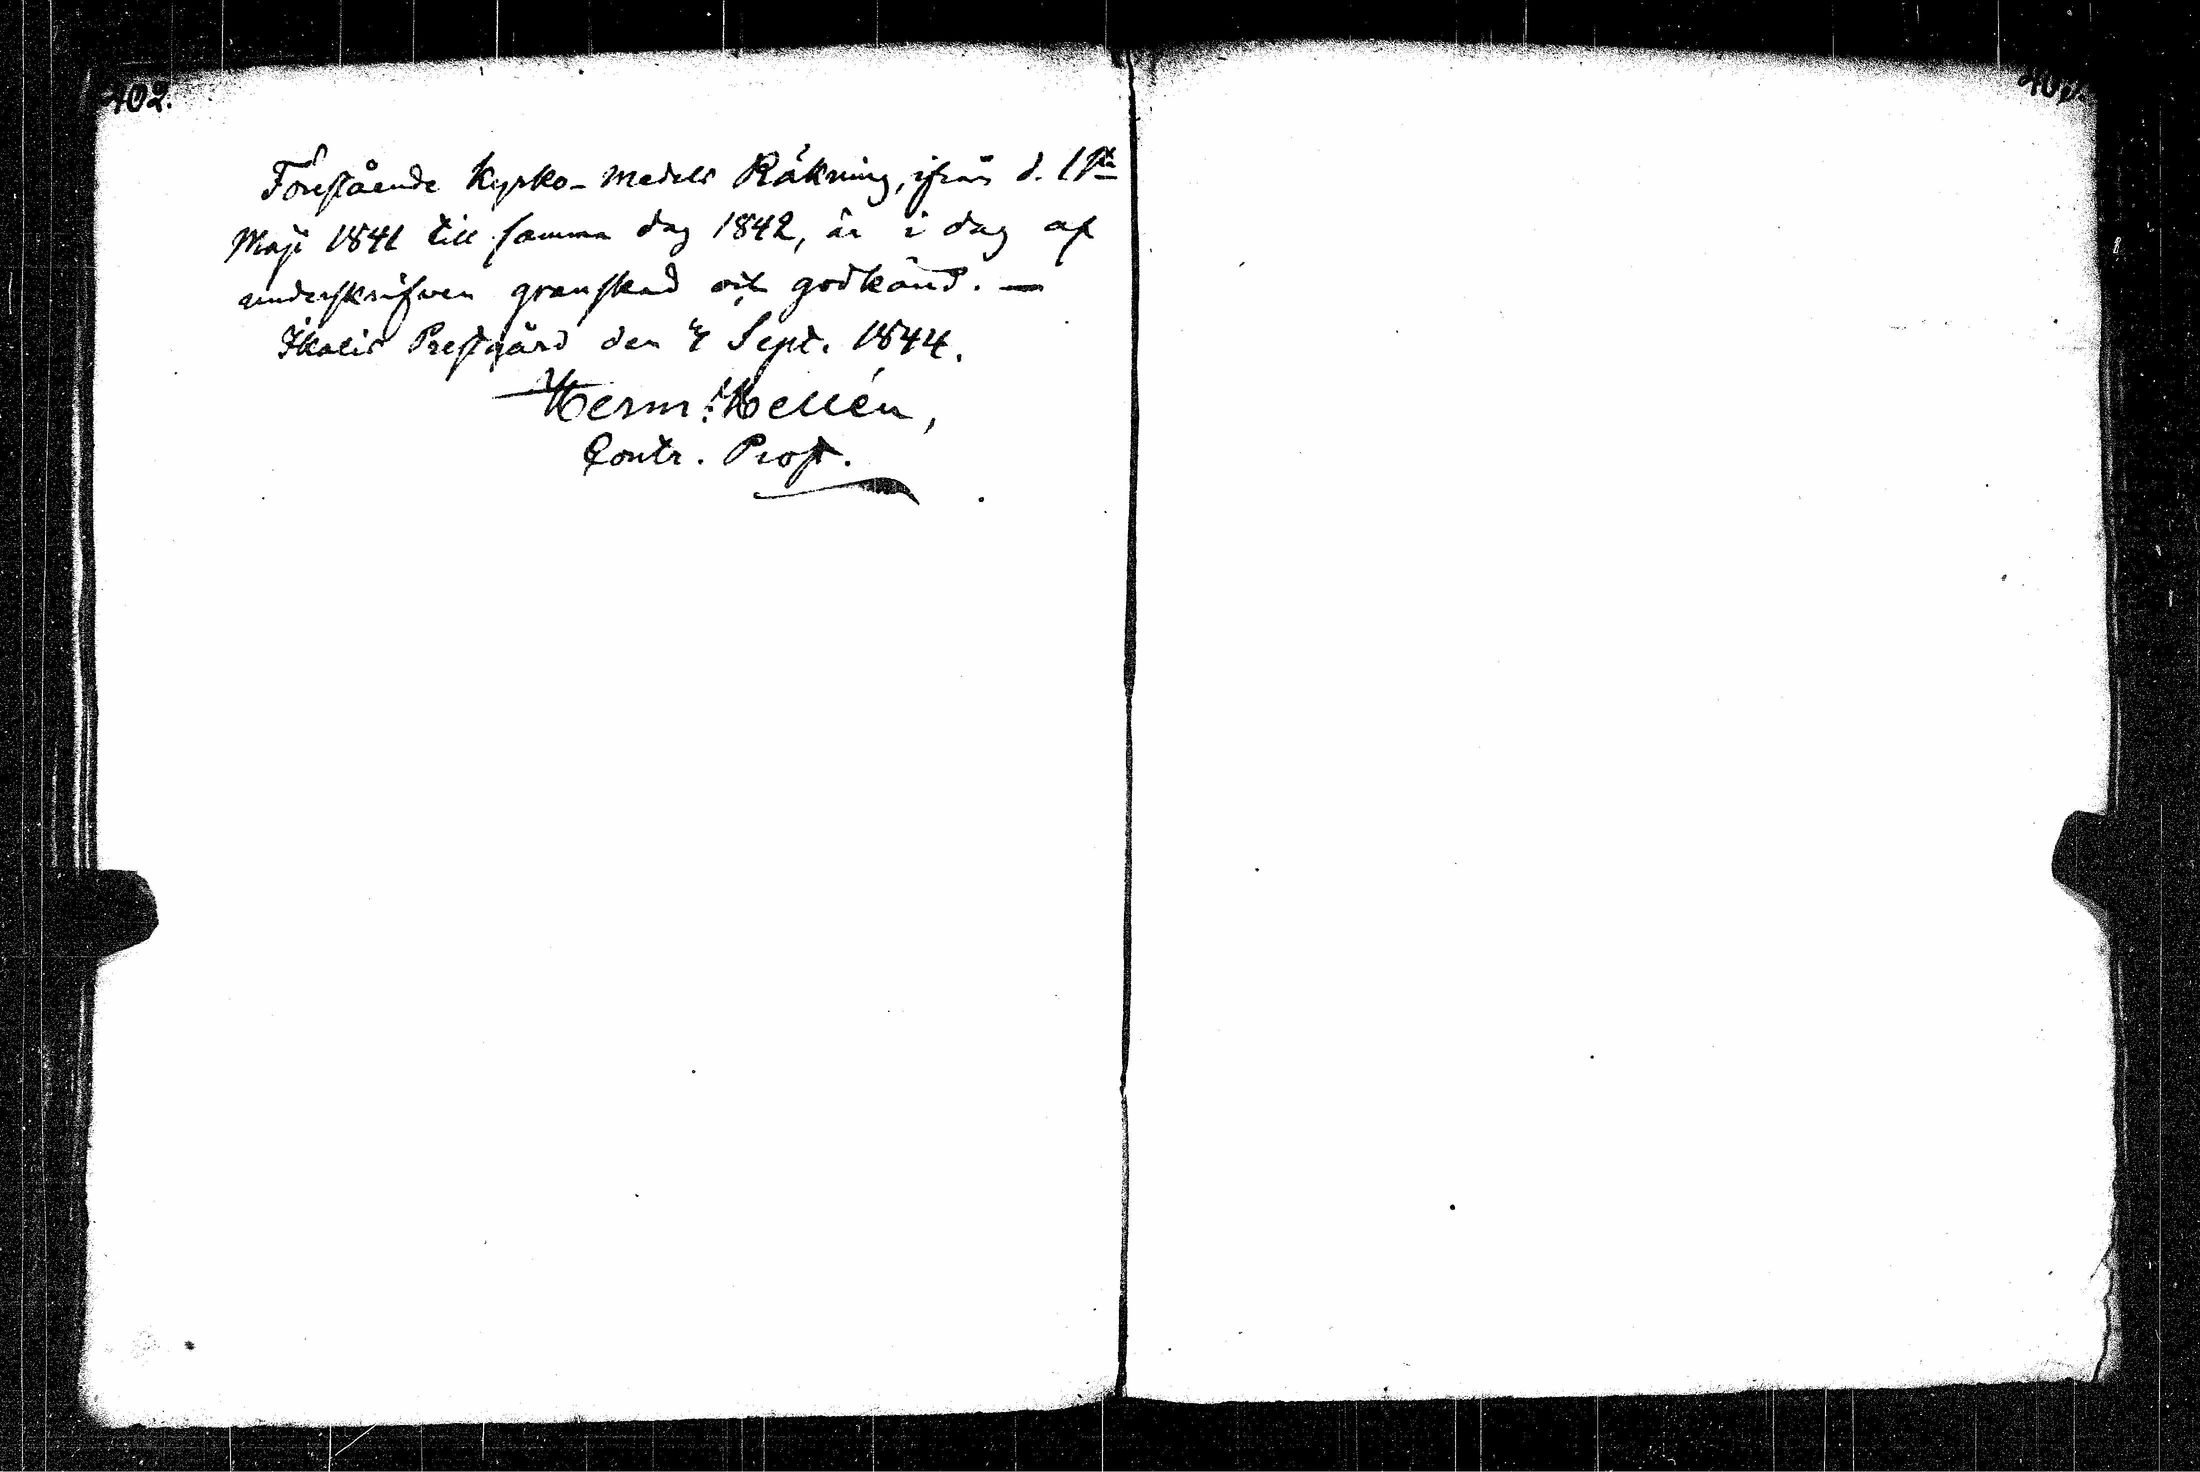 402.
Förestående Kyrko-Medels Räkning, ifrån d. 1sta
Maji 1841 till samma dag 1842, är i dag af
underskrifven granskad och godkänd. —
Ikalis Prestgård den 4 Sept. 1844.
Herm: Hellén,
Contr. Prost.